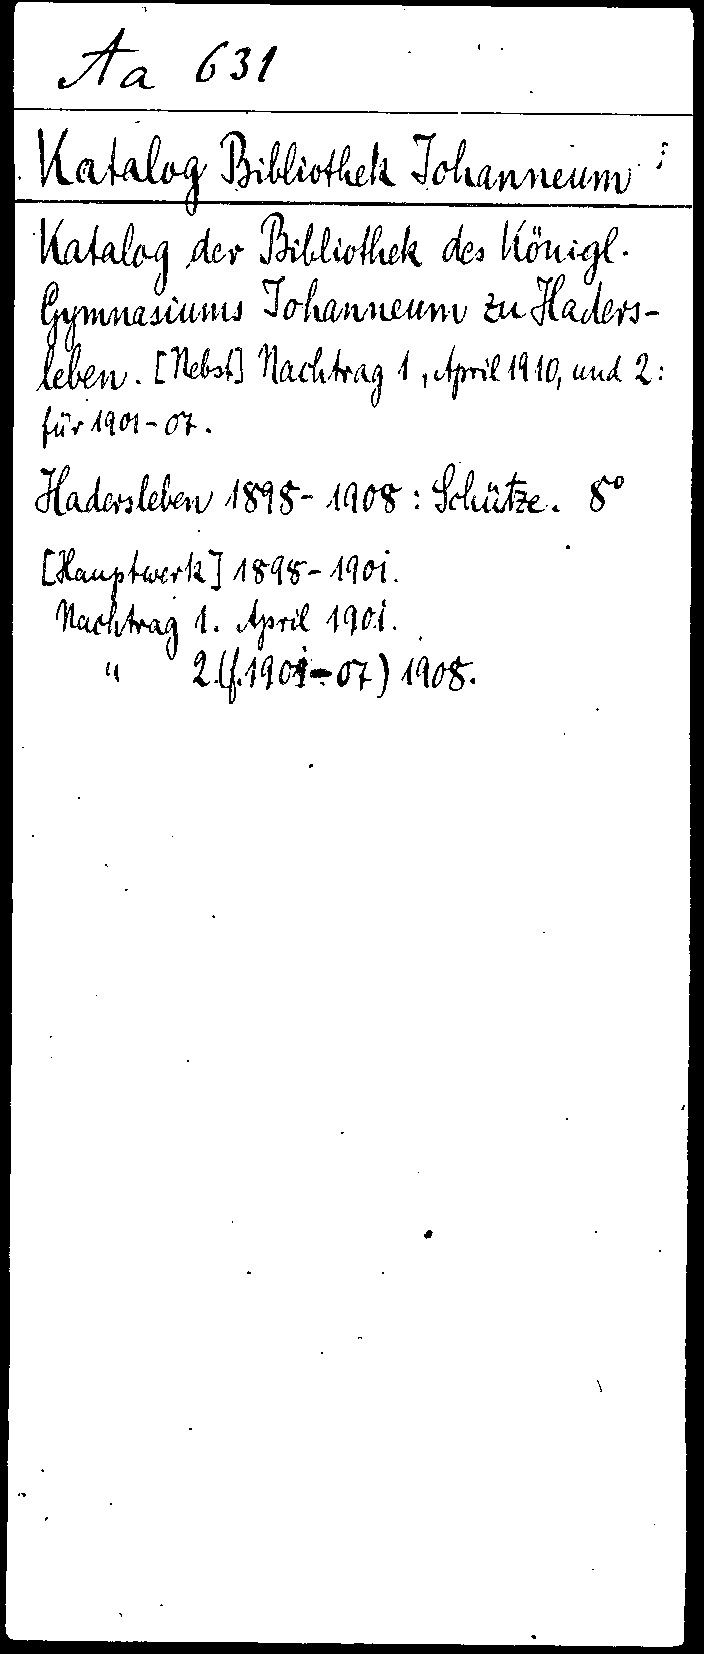 Aa 631
Katalog Bibliothek Johanneum
Katalog der Bibliothek des Königl.
Gymnasiums Johanneum zu Haders-
leben. [Nebst] Nachtrag 1, April 1910, und 2:
für 1901-07.
Hadersleben 1898-1908: Schütze. 8°
[Hauptwerk] 1898-1901.
Nachtrag 1. April 1901.
" 2.(f.1901-07) 1908.